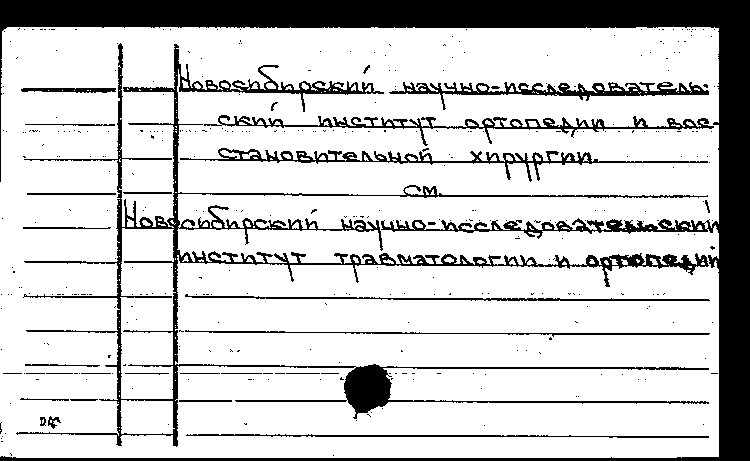 Новосибирский научно-исследователь-
ский институт ортопедии и вос-
становительной хирургии.
см.
Новосибирский научно-исследовательский
институт травматологии и ортопедии